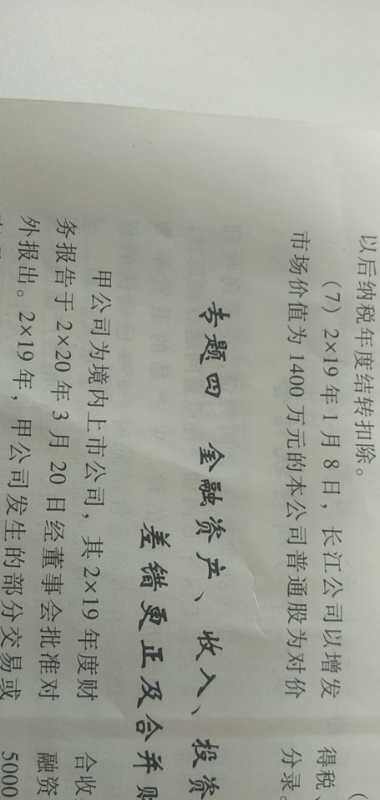 以后纳税年度结转扣除。
（7）2×19年1月8日，长江公司以增发
市场价值为1400万元的本公司普通股为对价
专题四 金融资产、收入、投资
差错更正及合并财
甲公司为境内上市公司，其2×19年度财
务报告于2×20年3月20日经董事会批准对
外报出。2×19年，甲公司发生的部分交易或
（
得税、
分录。
合收
融资
5000